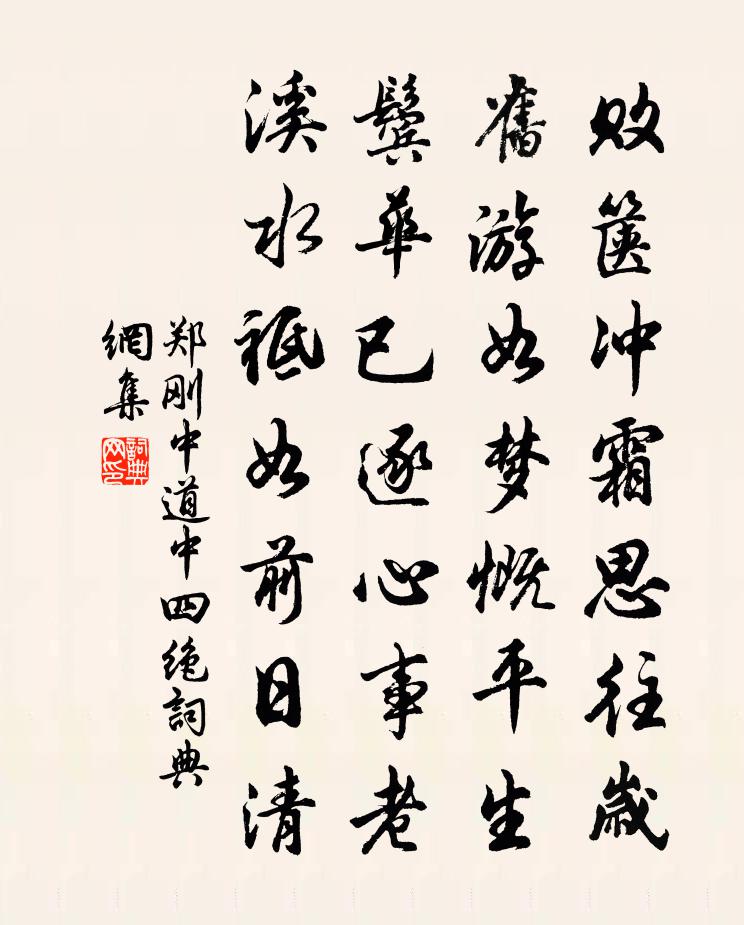 败箧冲霜思往歳
舊游如梦慨平生
鬓華已逐心事老
溪水祗如前日清
郑刚中道中四绝詞典
網集
詞典网印